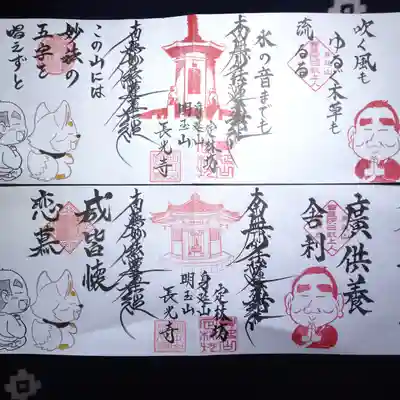 吹く風も
ゆるぐ木草も
流るる
水の音までも
南無妙法蓮華経
定林坊
身延山
明玉山
長光寺
南無妙法蓮華経
この山には
妙法の
五字を
唱えずと
廣供養
舎利
南無妙法蓮華経
定林坊
身延山
明玉山
長光寺
南無妙法蓮華経
咸皆懐
恋慕